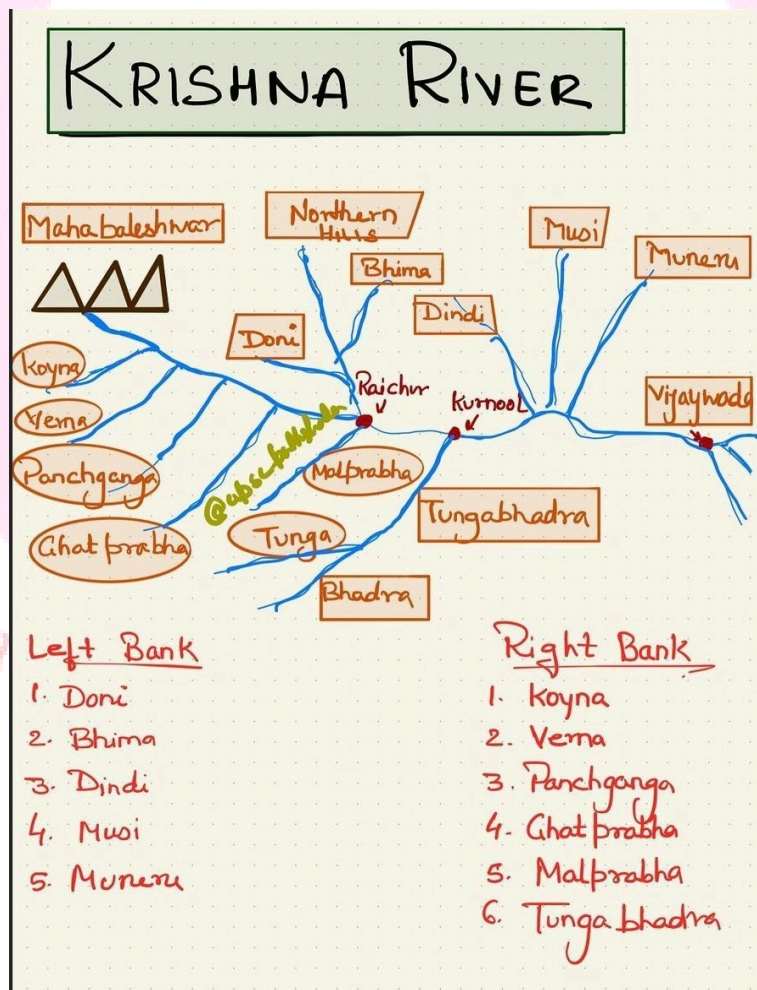 KRISHNA RIVER
Mahabaleshwar
Northern
HILLS
Bhima
Musi
Muneru
Dindi
Doni
Koyna
Raichur
Kurnool
Vijaywada
Verna
Panchganga
Malprabha
Ghatprabha
Tunga
Tungabhadra
Bhadra
Left Bank
1. Doni
2. Bhima
3. Dindi
4. Musi
5. Muneru
Right Bank
1. Koyna
2. Verna
3. Panchganga
4. Ghatprabha
5. Malprabha
6. Tungabhadra